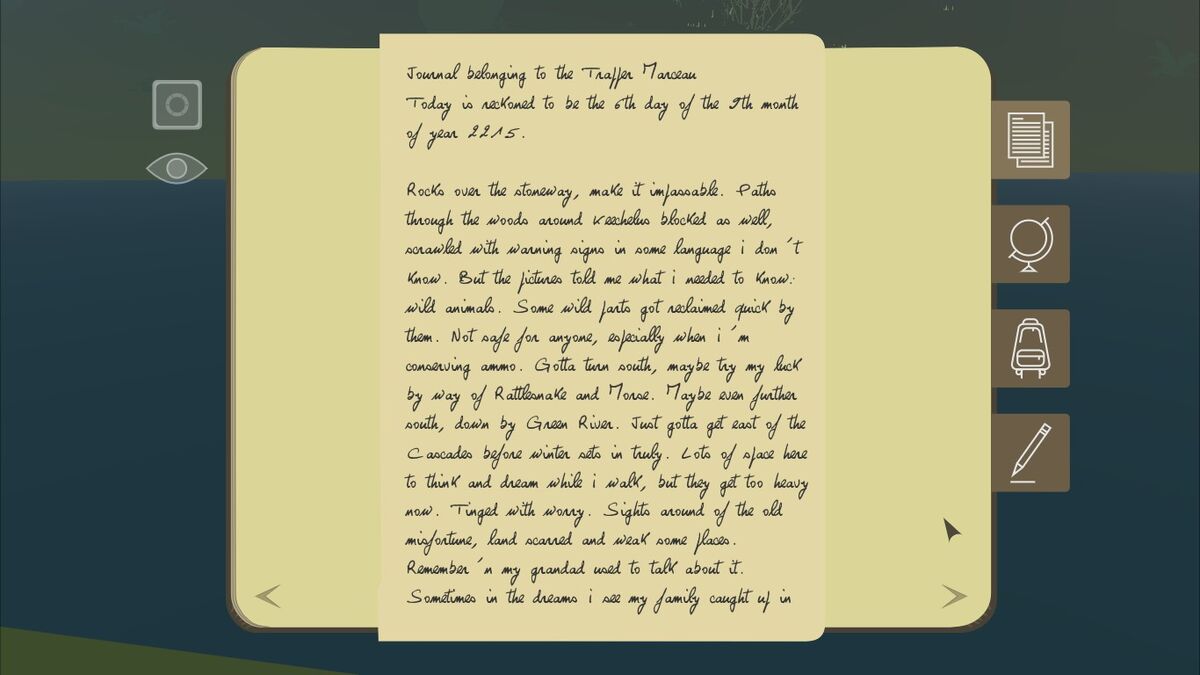 Journal belonging to the Traffer Marceau
Today is reckoned to be the 6th day of the 9th month
of year 2215.
Rocks over the stoneway, make it impassable. Paths
through the woods around Keechelus blocked as well,
scrawled with warning signs in some language i don't
know. But the pictures told me what i needed to know:
wild animals. Some wild parts got reclaimed quick by
them. Not safe for anyone, especially when i'm
conserving ammo. Gotta turn south, maybe try my luck
by way of Rattlesnake and Morse. Maybe even further
south, down by Green River. Just gotta get east of the
Cascades before winter sets in truly. Lots of space here
to think and dream while i walk, but they get too heavy
now. Tinged with worry. Sights around of the old
misfortune, land scarred and weak some places.
Remember 'n my grandad used to talk about it.
Sometimes in the dreams i see my family caught up in